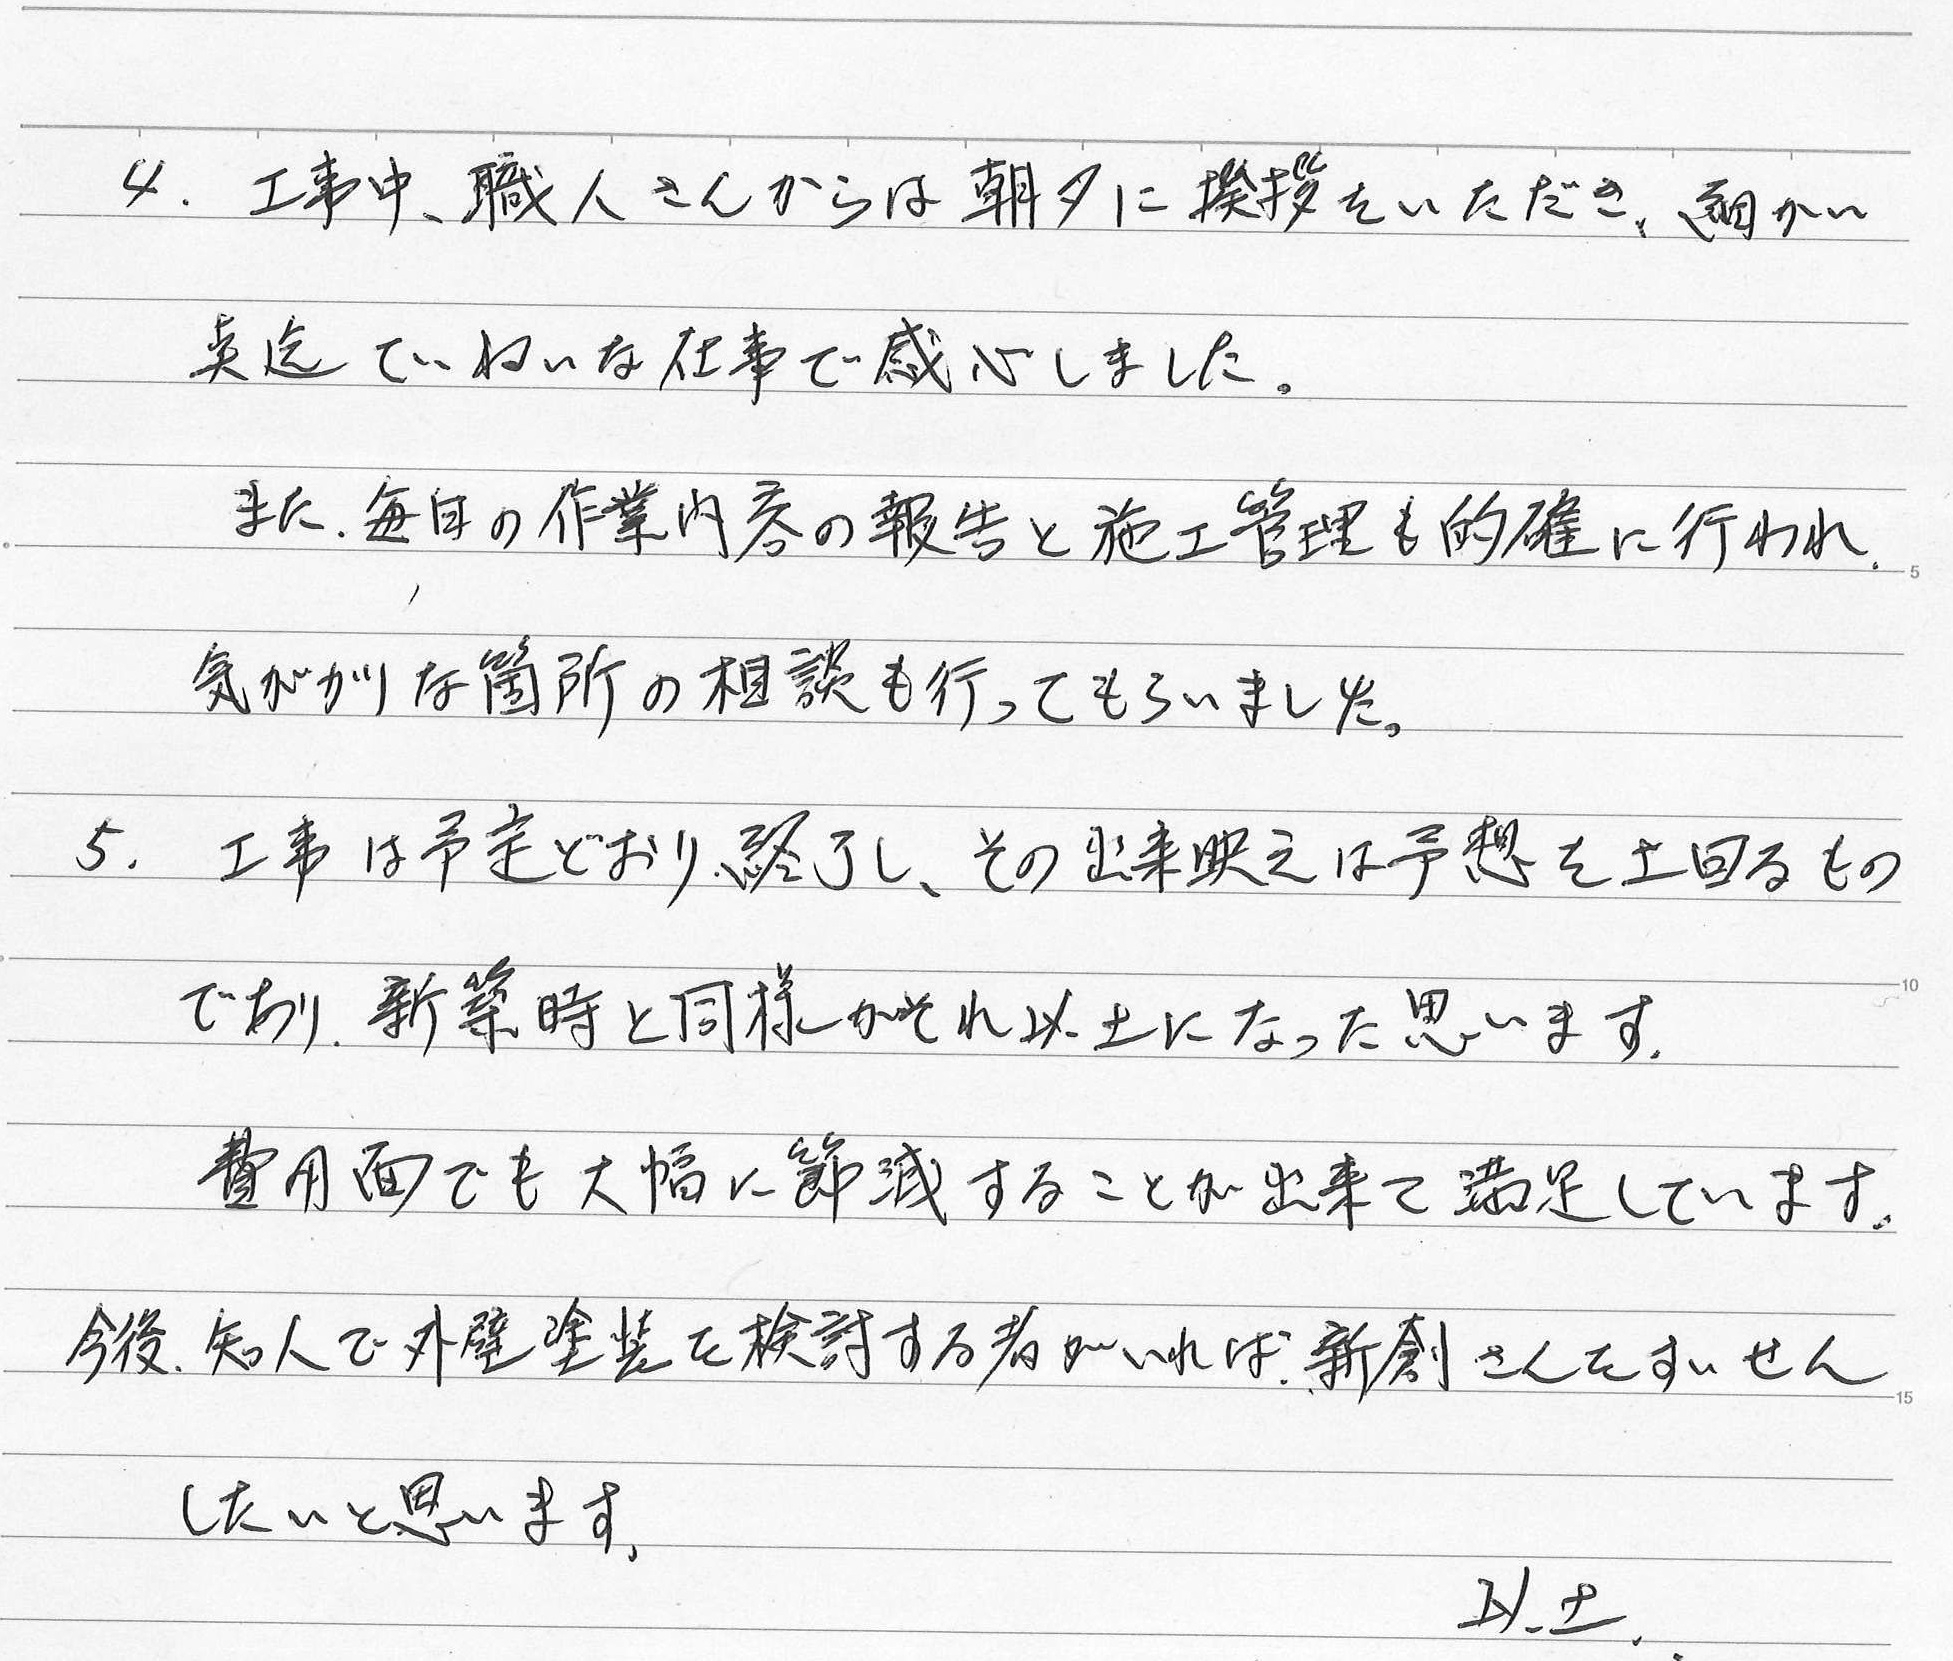 4. 工事中、職人さんからは朝夕に挨拶をいただき、細かい
点迄ていねいな仕事で感心しました。
また、毎日の作業内容の報告と施工管理も的確に行われ、
5
気ががりな箇所の相談も行ってもらいました。
5. 工事は予定どおり終了し、その出来映えは予想を上回るもの
であり、新築時と同様かそれ以上になった思います。
10
費用面でも大幅に節減することが出来て満足しています。
今後、知人で外壁塗装を検討する者がいれば、新創さんをすいせん
15
したいと思います。
以上.